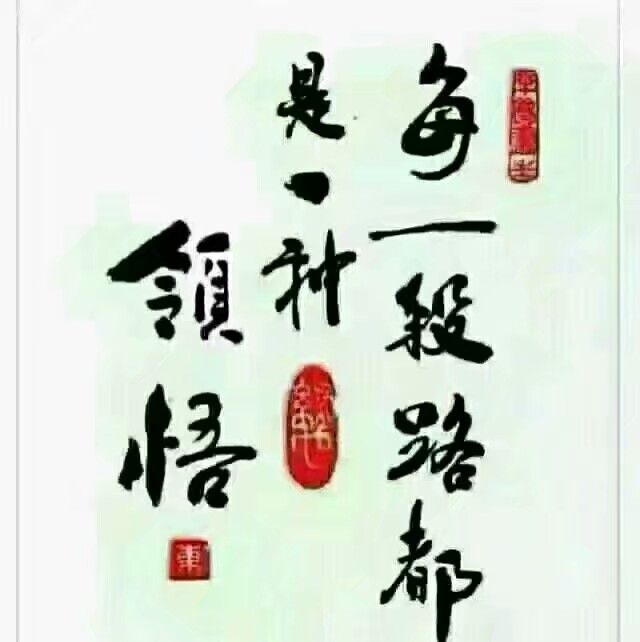 每一殺路都
是一种
領悟
東